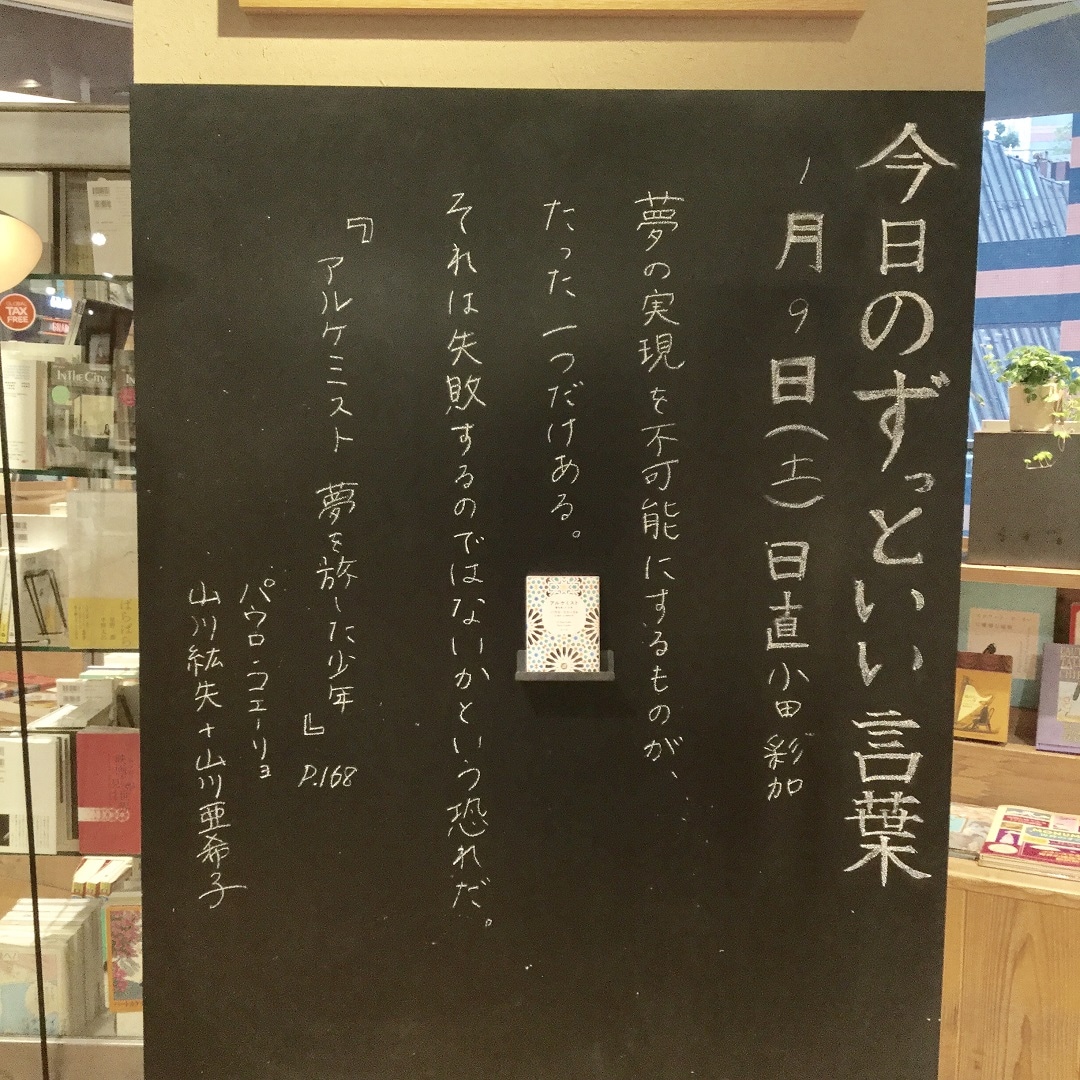 今日のずっといい言葉
1月9日(土) 日直 小田彩加
夢の実現を不可能にするものが、
たった一つだけある。
それは失敗するのではないかという恐れだ。
『アルケミスト 夢を旅した少年』 P.168
パウロ・コエーリョ
山川紘矢+山川亜希子
アルケミスト
TAX
FREE
IN THE CITY